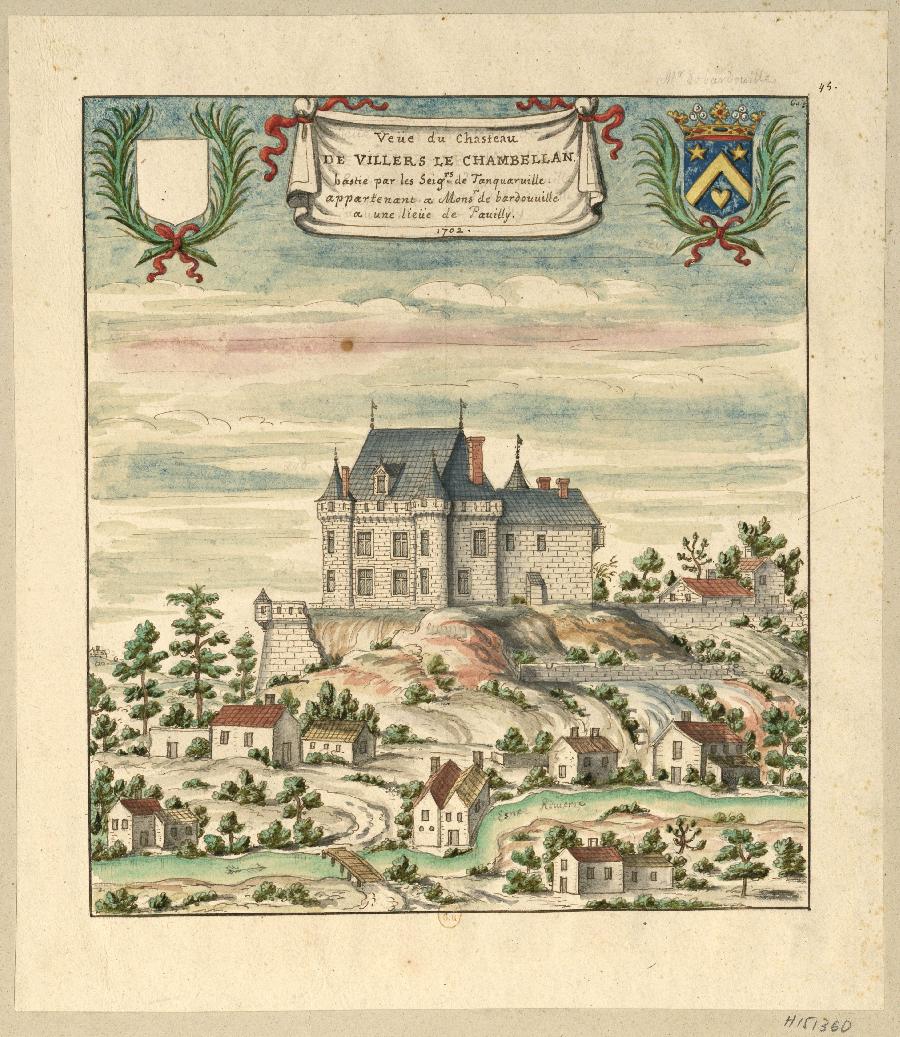 Mr de bardouille
45.
Veüe du Chasteau
DE VILLERS LE CHAMBELLAN,
bastie par les Seigrs de Tanquaruille
appartenant a Monsr de bardouuille
a une lieüe de Pauilly.
1702.
Esne Riuiere
H151360